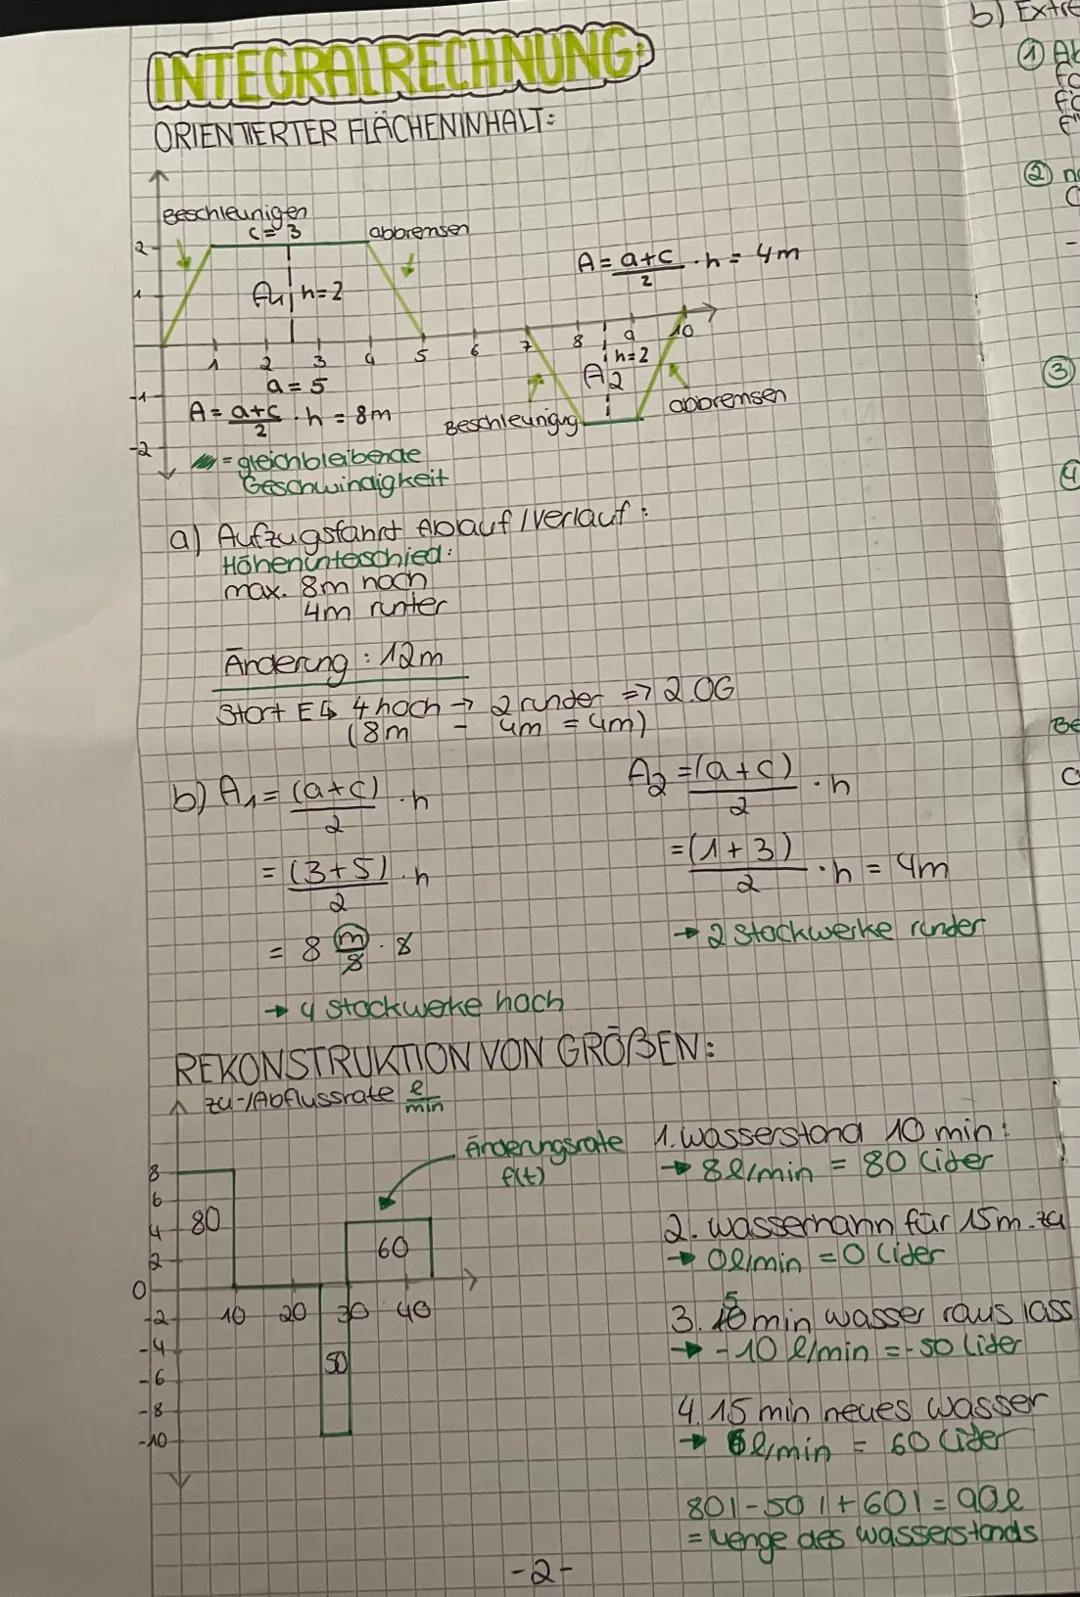 INTEGRALRECHNUNG:
ORIENTIERTER FLÄCHENINHALT:
Beschleunigen
c = 3
abbremsen
2
1
A1 h=2
A = a+c/2 · h = 4m
1 2 3 4 5 6 7 8 9 10
a = 5
h=2
A2
-1
A = a+c/2 · h = 8m
Beschleunigug
abbremsen
-2
= gleichbleibende
Geschwindigkeit
a) Aufzugsfahrt Ablauf/Verlauf:
Höhenunteschied:
max. 8m hoch
4m runter
Änderung: 12m
Start E↳ 4 hoch → 2 runder => 2.OG
(8m - 4m = 4m)
b) A1 = (a+c)/2 · h
= (3+5)/2 · h
= 8 m/s · s
→ 4 Stockwerke hoch
A2 = (a+c)/2 · h
= (1+3)/2 · h = 4m
→ 2 Stockwerke runder
REKONSTRUKTION VON GRÖßEN:
zu-/Abflussrate l/min
Änderungsrate
f(t)
8
6
4
2
0
-2
-4
-6
-8
-10
80
60
50
10 20 30 40
1. Wasserstand 10 min:
→ 8l/min = 80 Lider
2. Wasserhann für 15m. zu
→ 0l/min = 0 Lider
3. 5 min wasser raus lass
→ -10 l/min = -50 Lider
4. 15 min neues Wasser
→ 6l/min = 60 Lider
80l - 50 l + 60l = 90l
= Menge des Wasserstands
-2-
b) Extre
①
②
③
④
Be